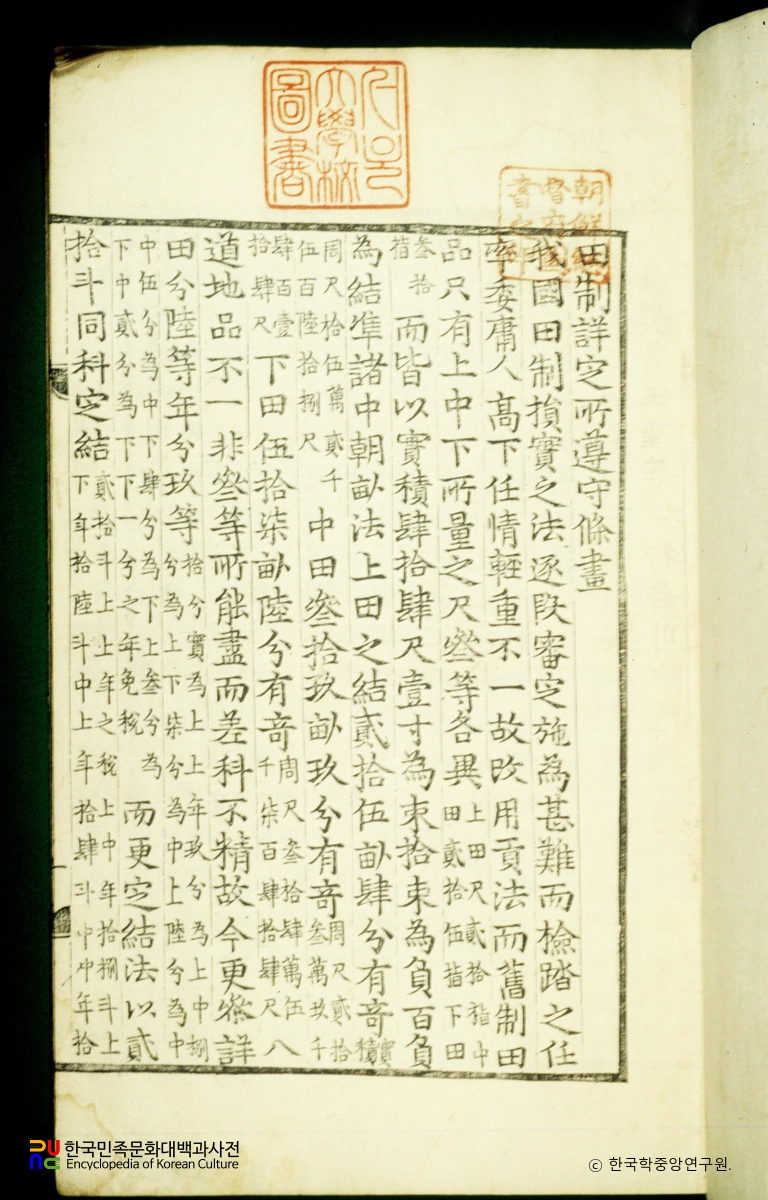 서울
大學校
圖書
朝鮮總
督府圖
田制詳定所遵守條畫
我國田制損實之法逐段審定施為甚難而檢踏之任
率委庸人高下任情輕重不一故改用貢法而舊制田
品只有上中下所量之尺叄等各異上田尺貳拾指中田貳拾伍指下田
叄拾指而皆以實積肆拾肆尺壹寸為束拾束為負百負
為結準諸中朝畝法上田之結貳拾伍畝肆分有奇實積
周尺拾伍萬貳千伍百陸拾捌尺中田叄拾玖畝玖分有奇周尺貳拾叄萬玖千
肆百壹拾肆尺下田伍拾柒畝陸分有奇周尺叄拾肆萬伍千柒百肆拾肆尺八
道地品不一非叄等所能盡而差科不精故今更參詳
田分陸等年分玖等拾分實為上上年玖分為上中捌分為上下柒分為中上陸分為中
中伍分為中下肆分為下上叄分為下中貳分為下下一分之年免稅而更定結法以貳
拾斗同科定結貳拾斗上上年之稅上中年拾捌斗上下年拾陸斗中上年拾肆斗中中年拾
한국민족문화대백과사전
Encyclopedia of Korean Culture
© 한국학중앙연구원.